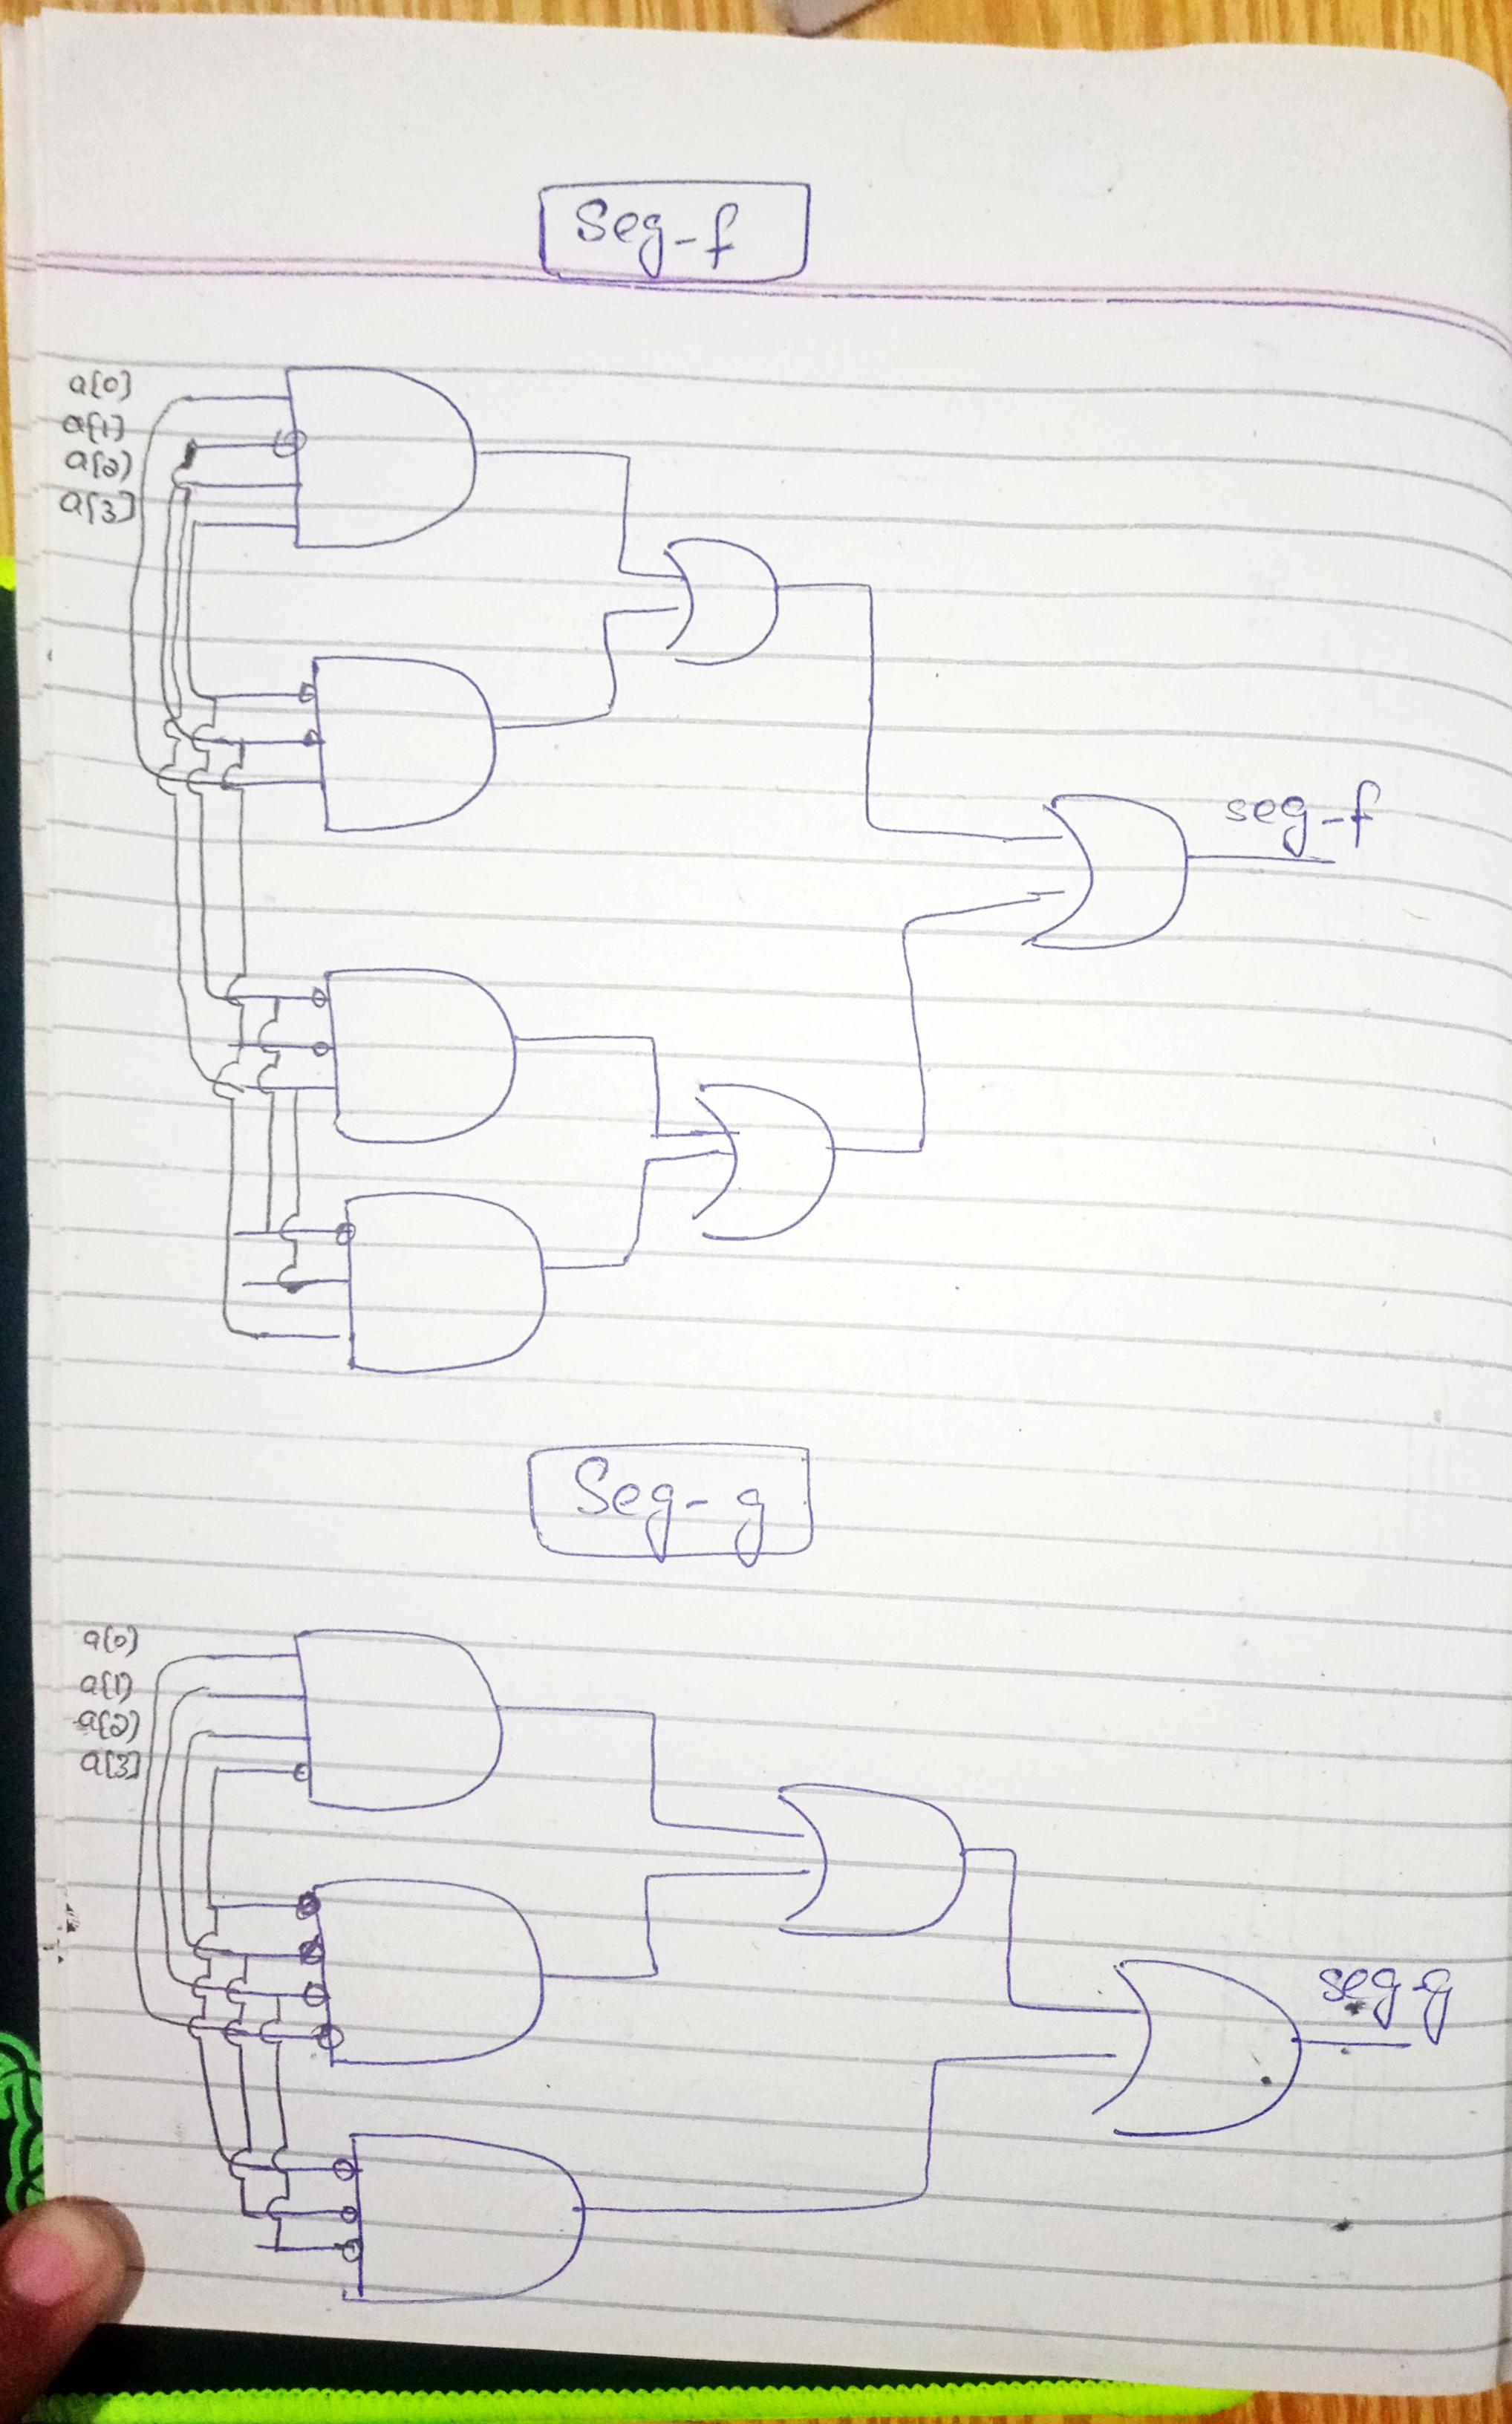 Seg-f
a[0]
a[1]
a[2]
a[3]
seg-f
Seg-g
a[0]
a[1]
a[2]
a[3]
seg-g